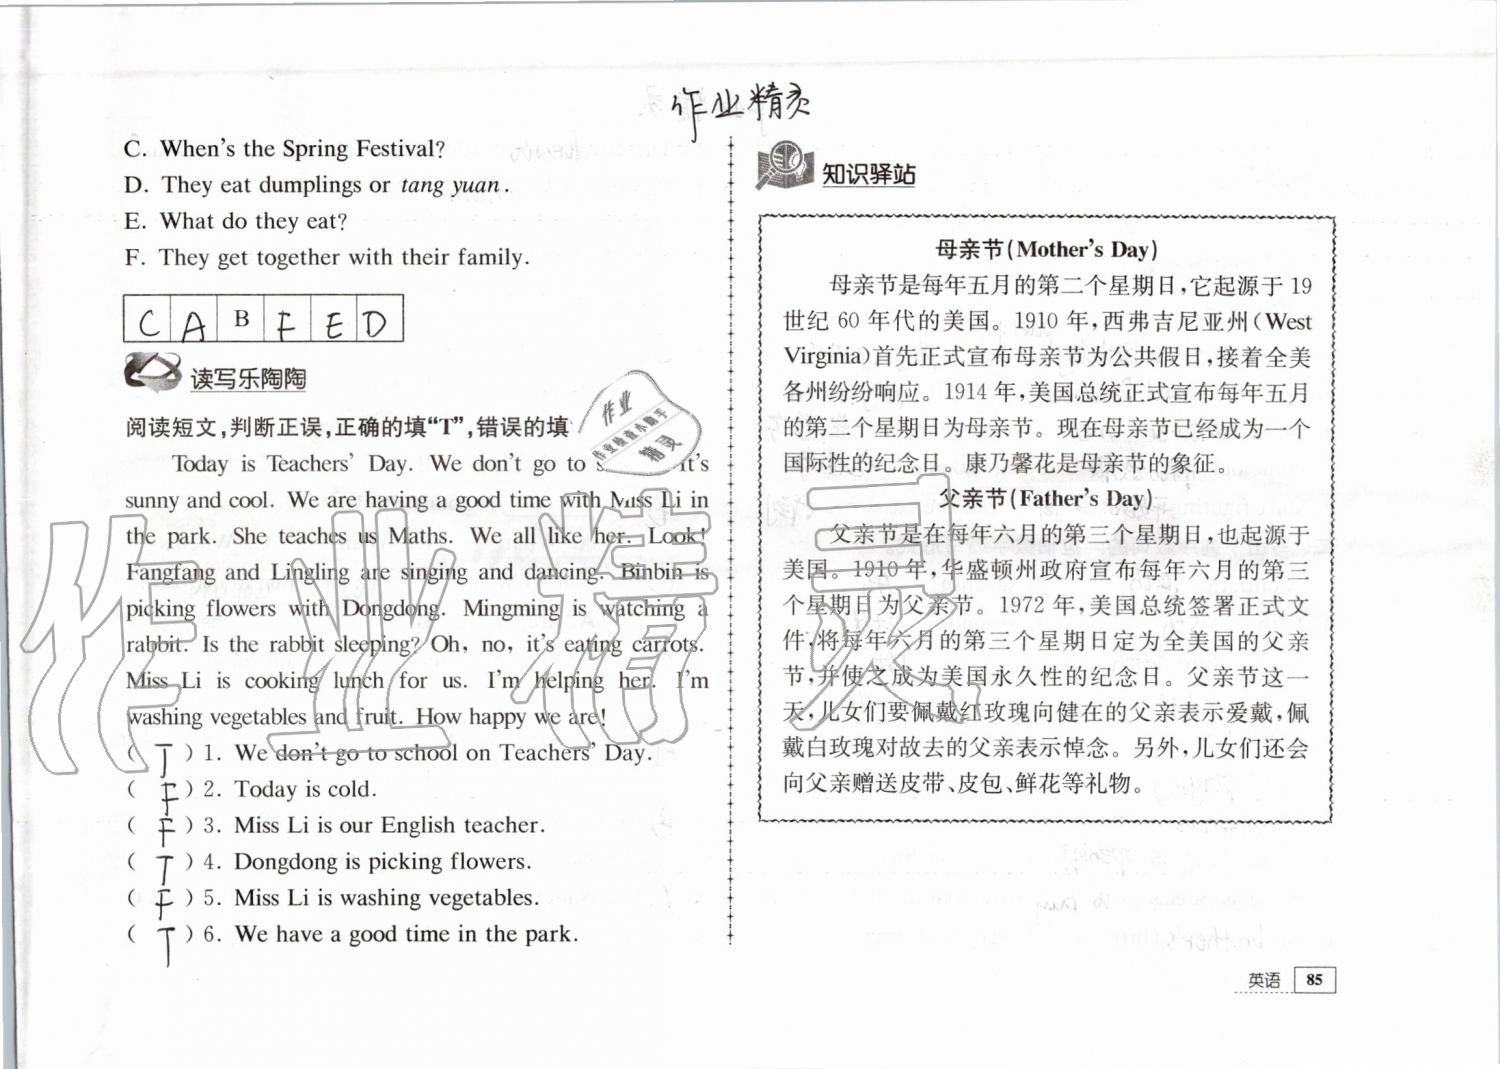 作业精灵
C. When's the Spring Festival?
D. They eat dumplings or tang yuan.
E. What do they eat?
F. They get together with their family.
C A B F E D
读写乐陶陶
阅读短文,判断正误,正确的填“T”,错误的填
Today is Teachers' Day. We don't go to s It's
sunny and cool. We are having a good time with Miss Li in
the park. She teaches us Maths. We all like her. Look!
Fangfang and Lingling are singing and dancing. Binbin is
picking flowers with Dongdong. Mingming is watching a
rabbit. Is the rabbit sleeping? Oh, no, it's eating carrots.
Miss Li is cooking lunch for us. I'm helping her. I'm
washing vegetables and fruit. How happy we are!
( T ) 1. We don't go to school on Teachers' Day.
( F ) 2. Today is cold.
( F ) 3. Miss Li is our English teacher.
( T ) 4. Dongdong is picking flowers.
( F ) 5. Miss Li is washing vegetables.
( T ) 6. We have a good time in the park.
作业
作业检查小助手
精灵
作业精灵
知识驿站
母亲节(Mother's Day)
母亲节是每年五月的第二个星期日,它起源于 19
世纪 60 年代的美国。1910 年,西弗吉尼亚州(West
Virginia)首先正式宣布母亲节为公共假日,接着全美
各州纷纷响应。1914 年,美国总统正式宣布每年五月
的第二个星期日为母亲节。现在母亲节已经成为一个
国际性的纪念日。康乃馨花是母亲节的象征。
父亲节(Father's Day)
父亲节是在每年六月的第三个星期日,也起源于
美国。1910 年,华盛顿州政府宣布每年六月的第三
个星期日为父亲节。1972 年,美国总统签署正式文
件,将每年六月的第三个星期日定为全美国的父亲
节,并使之成为美国永久性的纪念日。父亲节这一
天,儿女们要佩戴红玫瑰向健在的父亲表示爱戴,佩
戴白玫瑰对故去的父亲表示悼念。另外,儿女们还会
向父亲赠送皮带、皮包、鲜花等礼物。
英语 85